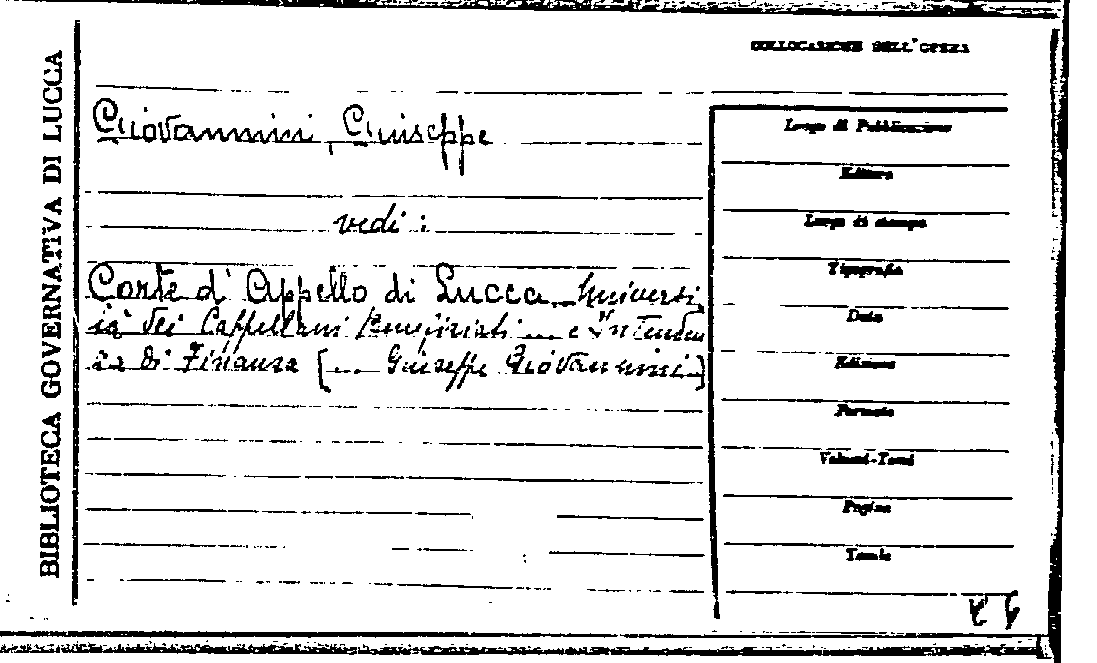 BIBLIOTECA GOVERNATIVA DI LUCCA
COLLOCAZIONE DELL'OPERA
Giovannini, Giuseppe
vedi:
Corte d'Appello di Lucca. Universi
tà dei Cappellani Beneficiati ... e Intenden
za di Finanza [... Giuseppe Giovannini]
Luogo di Pubblicazione
Editore
Luogo di stampa
Tipografia
Data
Edizione
Formato
Volumi-Tomi
Pagine
Tavole